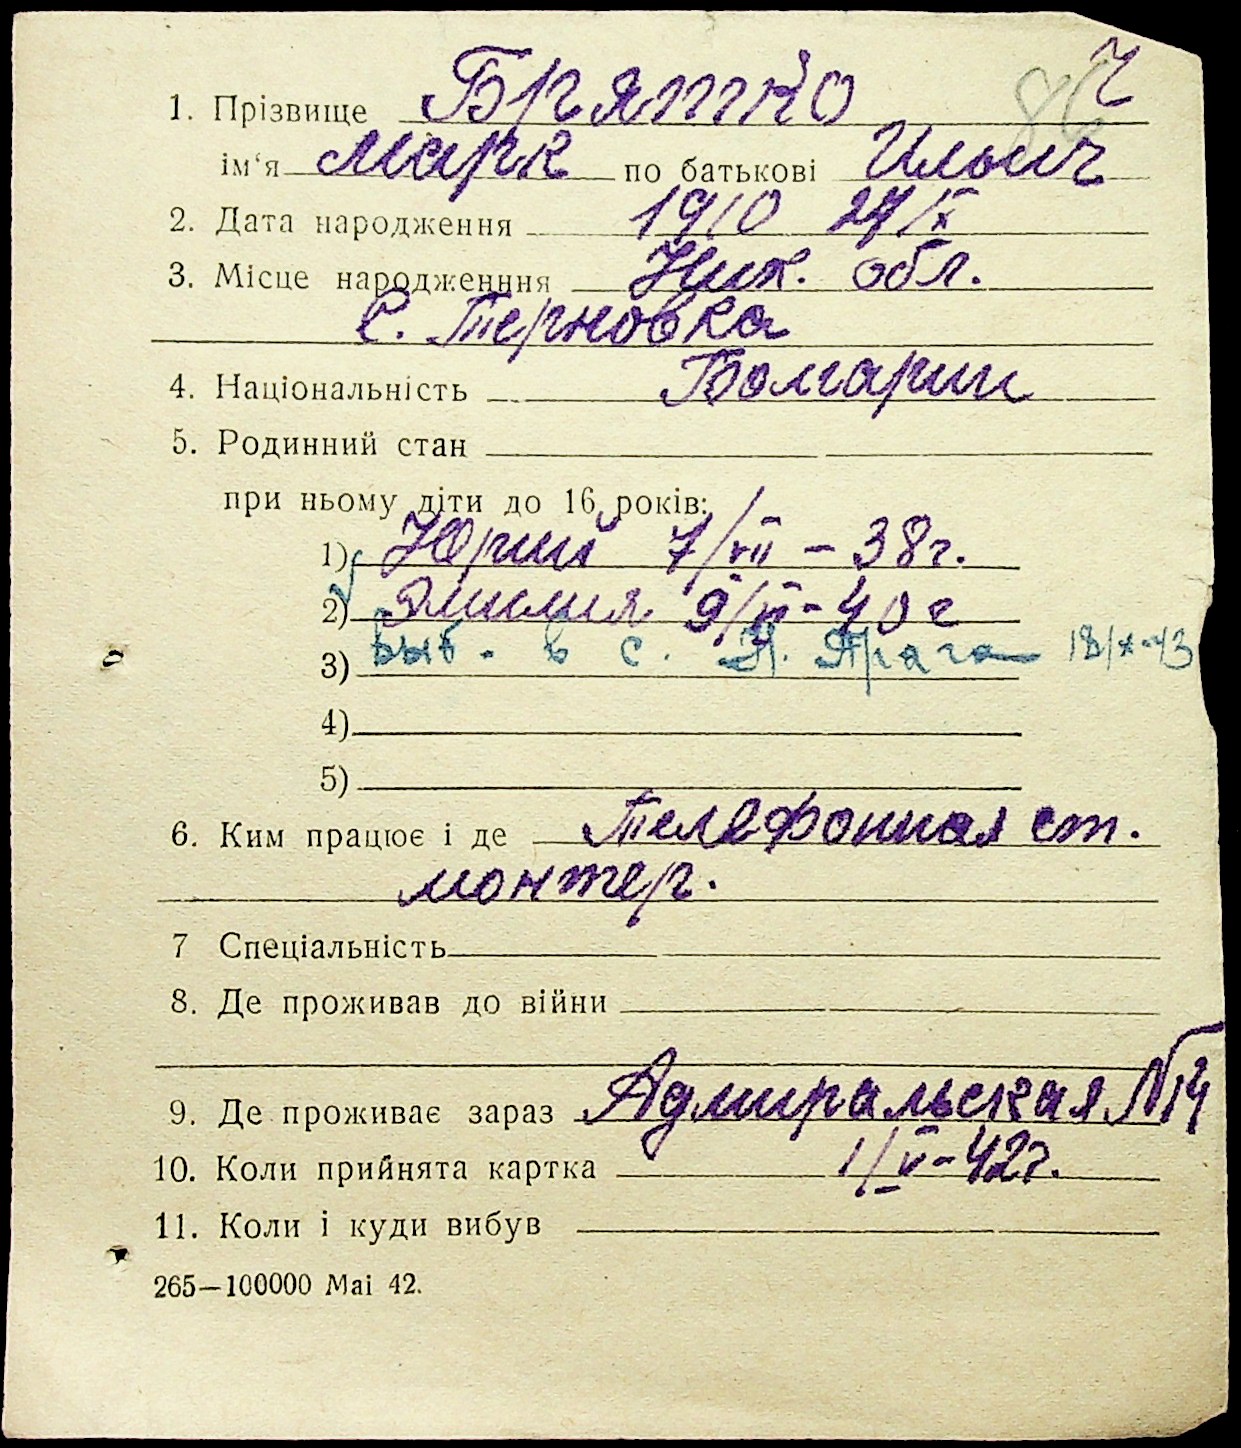 Ч
86
1. Прізвище Брятко
ім‘я Марк по батькові Ильич
2. Дата народження 1910 27/X
3. Місце народженння Ник. обл.
с. Терновка
4. Національність Болгарин
5. Родинний стан
при ньому діти до 16 років:
1) Юрий 7/VII – 38 г.
2) Эмилия 9/VI - 40 г
3) Выб. в с. Я. 18/X-43
4)
5)
6. Ким працює і де Телефонная ст.
монтер.
7 Спеціальність
8. Де проживав до війни
9. Де проживає зараз Адмиральская №14
10. Коли прийнята картка 1/V-42г.
11. Коли і куди вибув
265—100000 Маі 42.